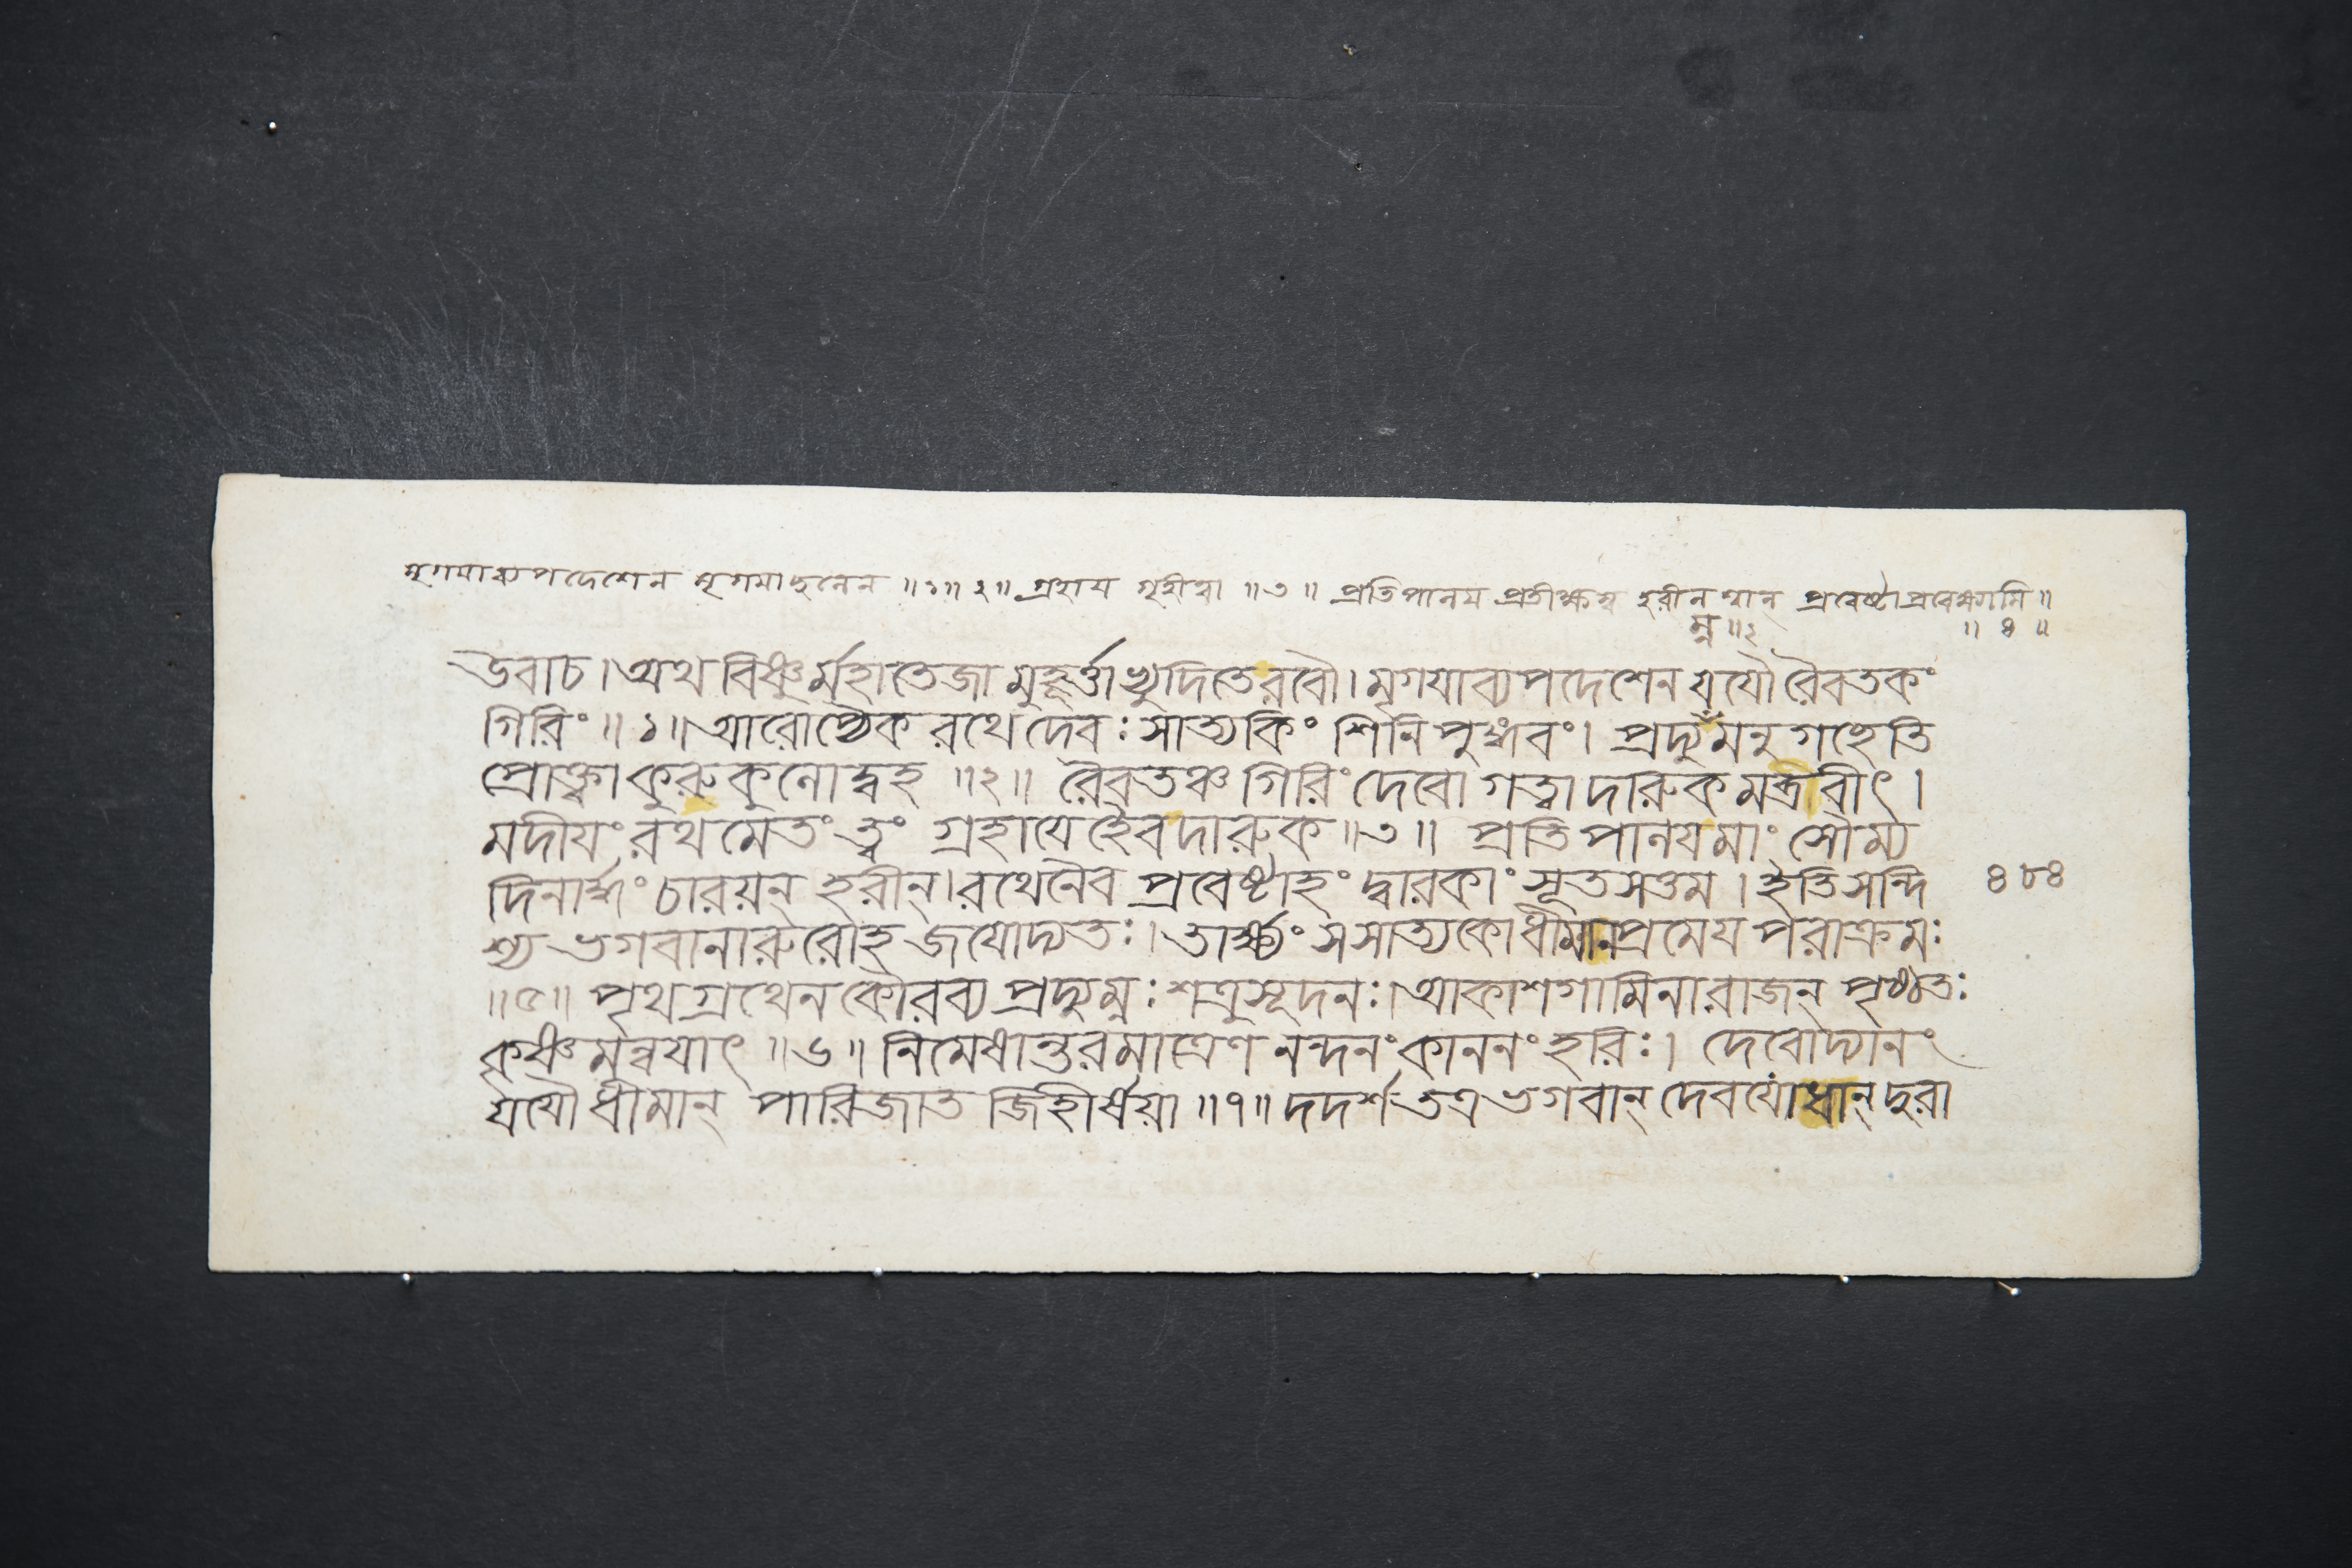 মৃগয়াব্যপদেশেন মৃগয়াছলেন ॥১॥ ২॥ গ্রহায গৃহীত্বা ॥৩॥ প্রতিপালয প্রতীক্ষস্ব হরীন শ্বান্ প্রবেষ্টা প্রবেক্ষ্যামি ॥
ম্ন ॥২ ॥ ৪ ॥
উবাচ । অথ বিষ্ণুর্মহাতেজা মুহূর্ত্তাভ্যুদিতে রবৌ । মৃগযাব্যপদেশেন যযৌ রৈবতকং
গিরিং ॥ ১ ॥ আরোপ্যৈক রথে দেবঃ সাত্যকিং শিনিপুঙ্গবং । প্রদ্যুম্নমনুগচ্ছেতি
প্রোক্ত্বা কুরুকুলোদ্বহ ॥২॥ রৈবতঞ্চ গিরিং দেবো গত্বা দারুকমব্রবীৎ ।
মদীযং রথমেতং ত্বং গ্রহাযেহৈব দারুক ॥৩॥ প্রতিপালযমাং সৌম্য
দিনার্দ্ধং চারয়ন্ হরীন্ । রথেনৈব প্রবেষ্টাহং দ্বারকাং সূতসত্তম । ইতি সন্দি ৪৮৪
শ্য ভগবানারুরোহ জযোদ্যতঃ । তার্ক্ষ্যং সসাত্যকো ধীমানপ্রমেয পরাক্রমঃ
॥৫॥ পৃথগ্রথেন কৌরব্য প্রদ্যুম্নঃ শত্রুসূদনঃ । আকাশগামিনা রাজন্ পৃষ্ঠতঃ
কৃষ্ণমন্বযাৎ ॥৬॥ নিমেষান্তরমাত্রেণ নন্দনং কাননং হরিঃ । দেবোদ্যানং
যযৌ ধীমান্ পারিজাত জিহীর্ষয়া ॥৭॥ দদর্শ তত্র ভগবান্ দেবযোধান্ দুরা